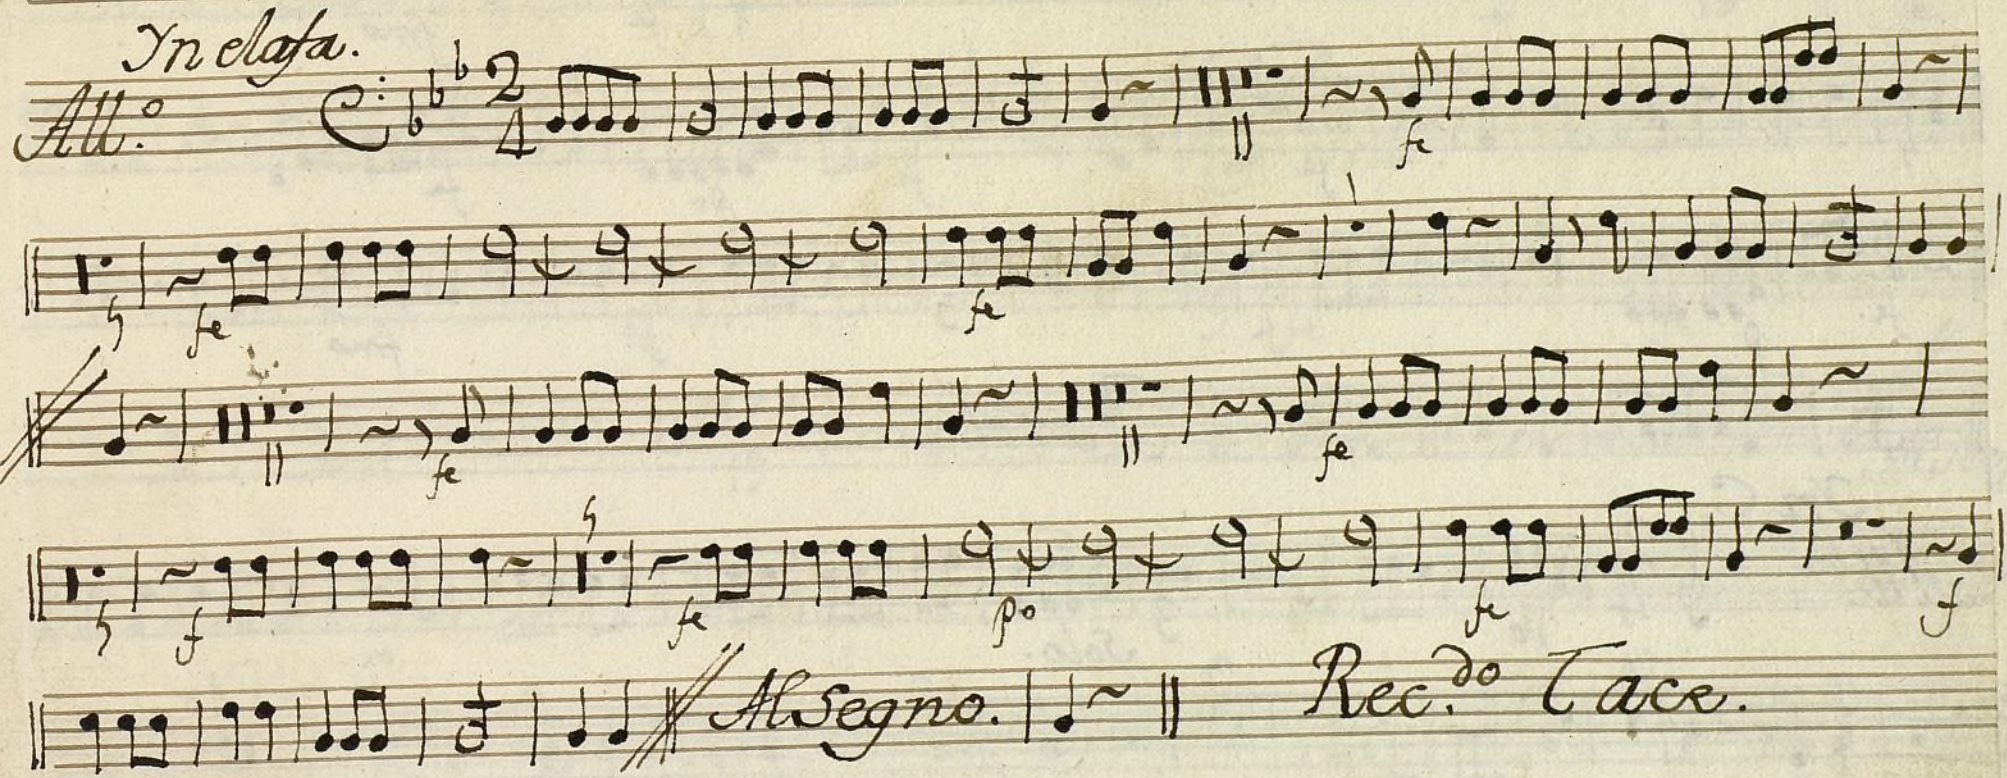 Yn elafa.
All.º 2 4
11 fe
5 fe fe 1
11 fe 11 fe
5 f 5 fe po fe f
Al Segno. Rec.do Tace.